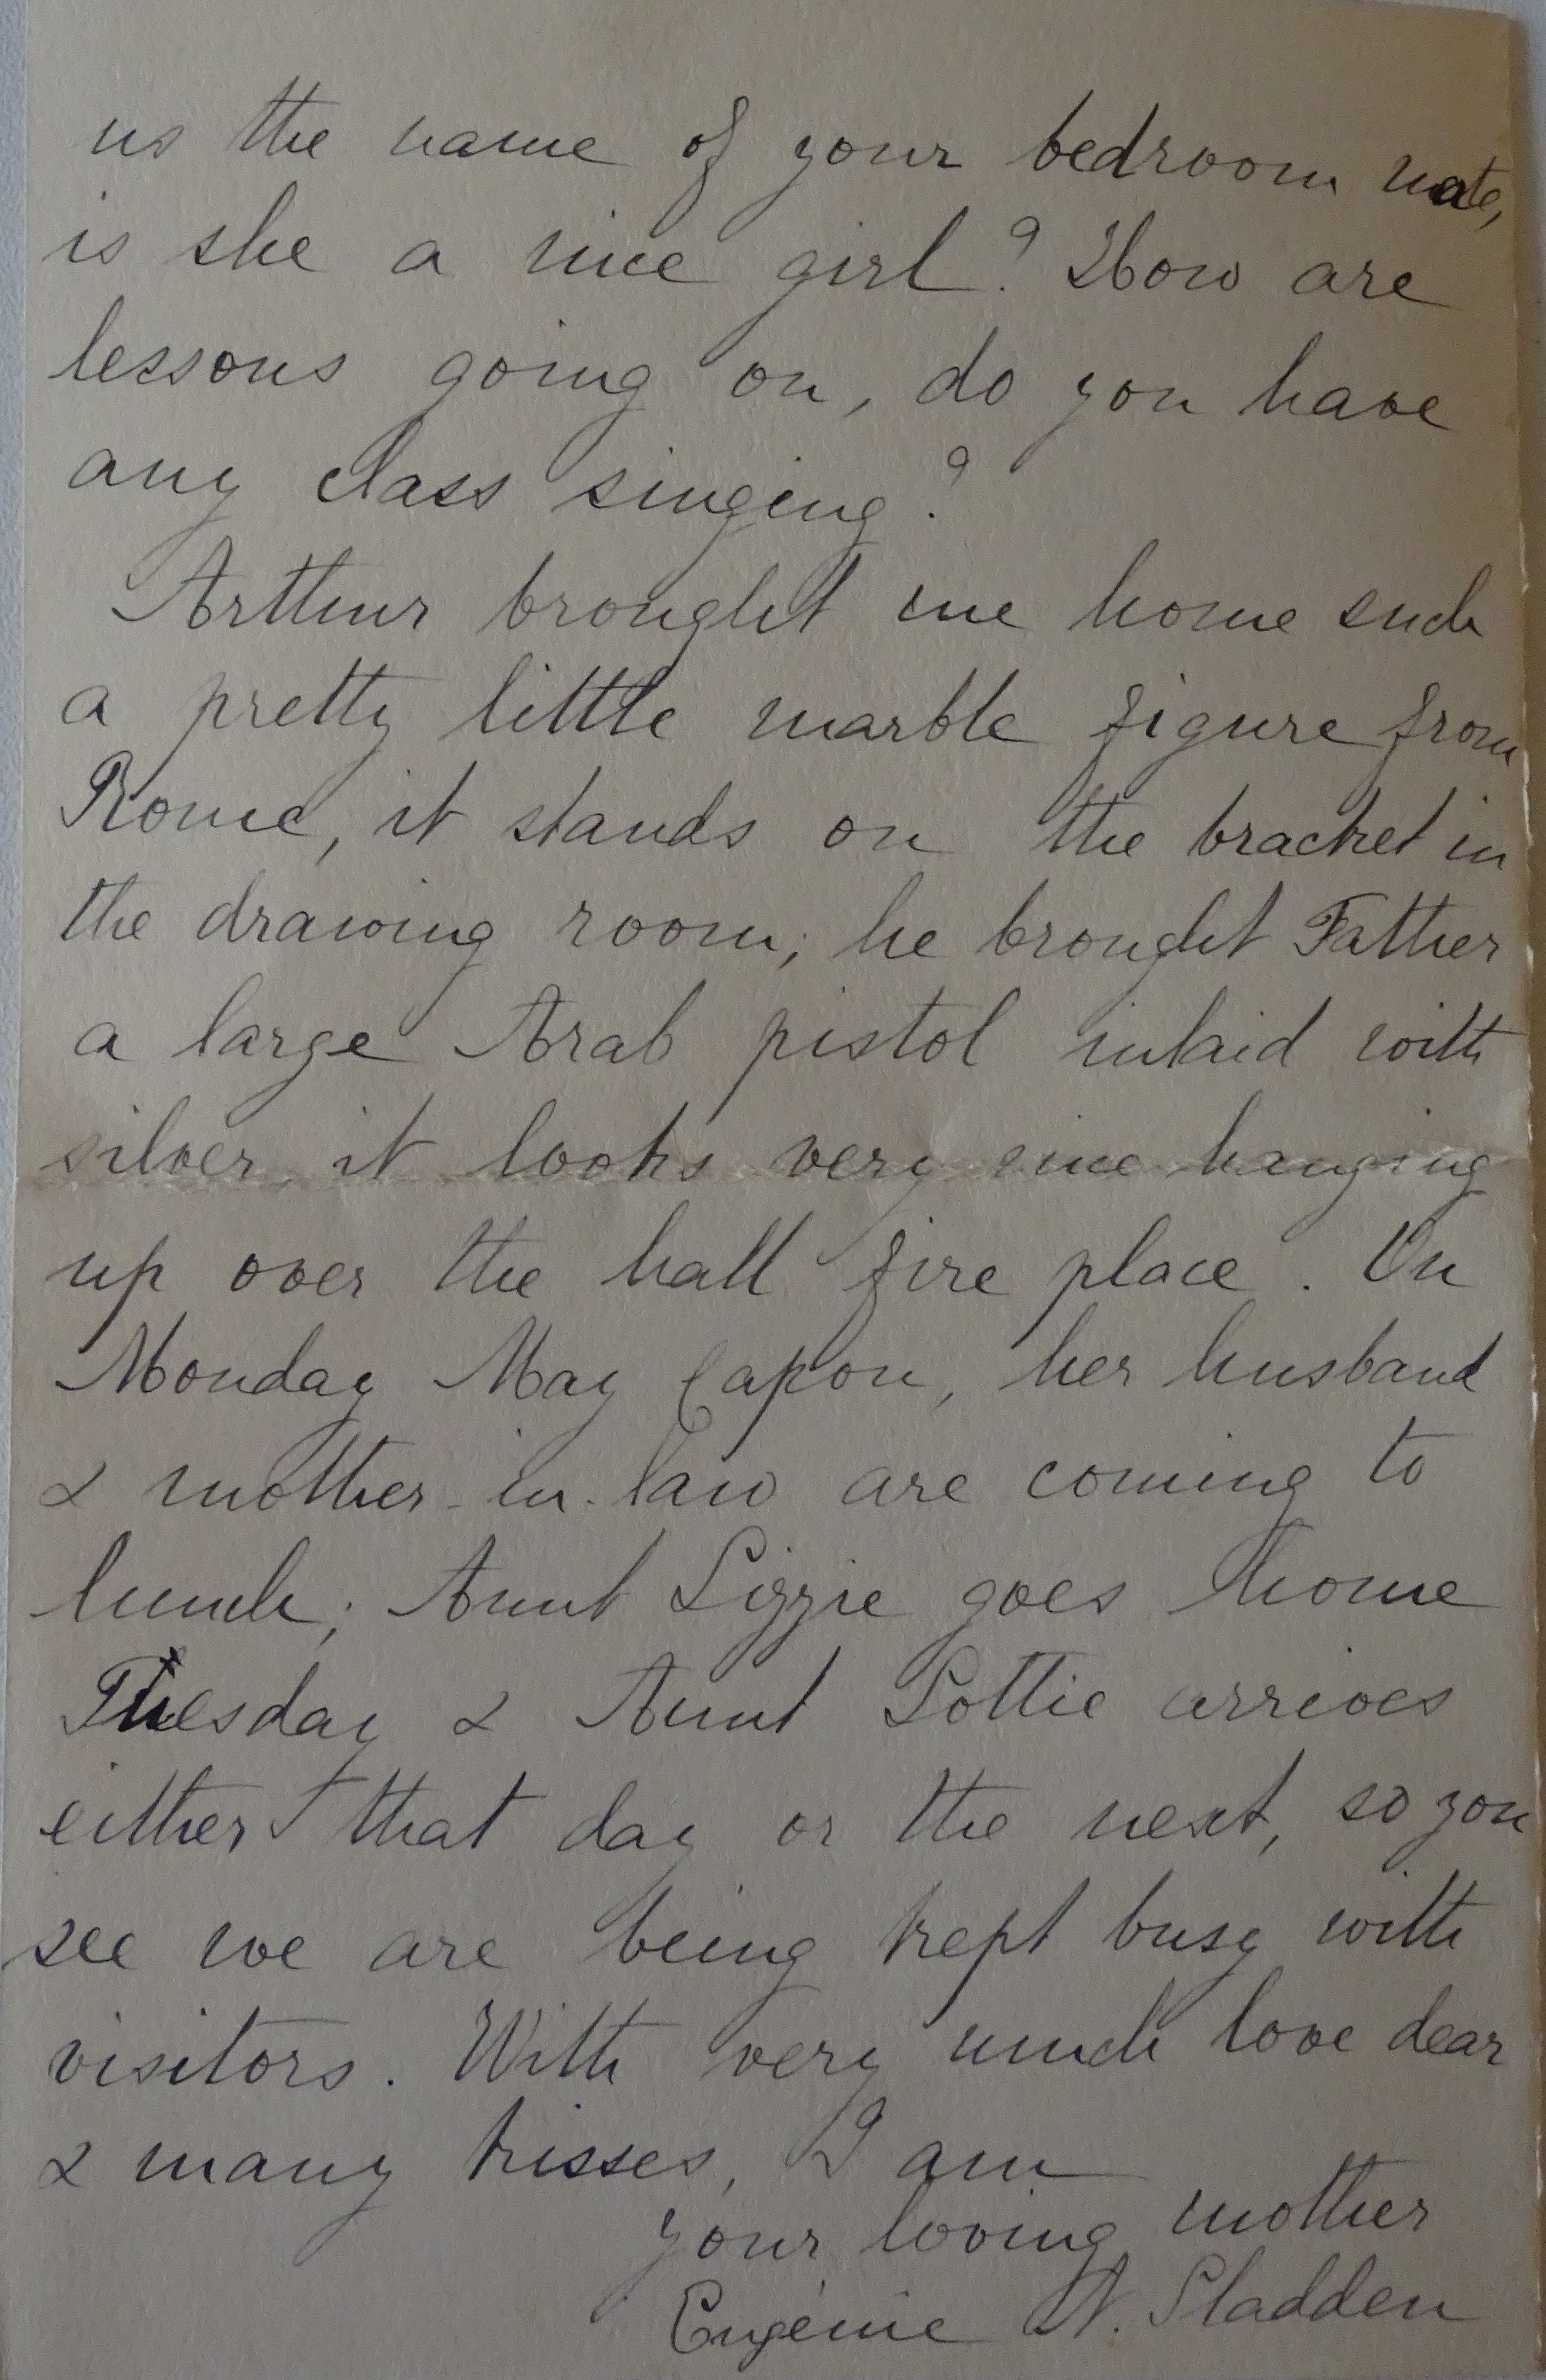 us the name of your bedroom mate,
is she a nice girl? How are
lessons going on, do you have
any class singing?
Arthur brought me home such
a pretty little marble figure from
Rome, it stands on the bracket in
the drawing room; he brought Father
a large Arab pistol inlaid with
silver, it looks very nice hanging
up over the hall fire place. On
Monday May Capon, her husband
& mother-in-law are coming to
lunch; Aunt Lizzie goes home
Tuesday & Aunt Lottie arrives
either that day or the next, so you
see we are being kept busy with
visitors. With very much love dear
& many kisses, I am
your loving mother
Eugénie N. Sladden